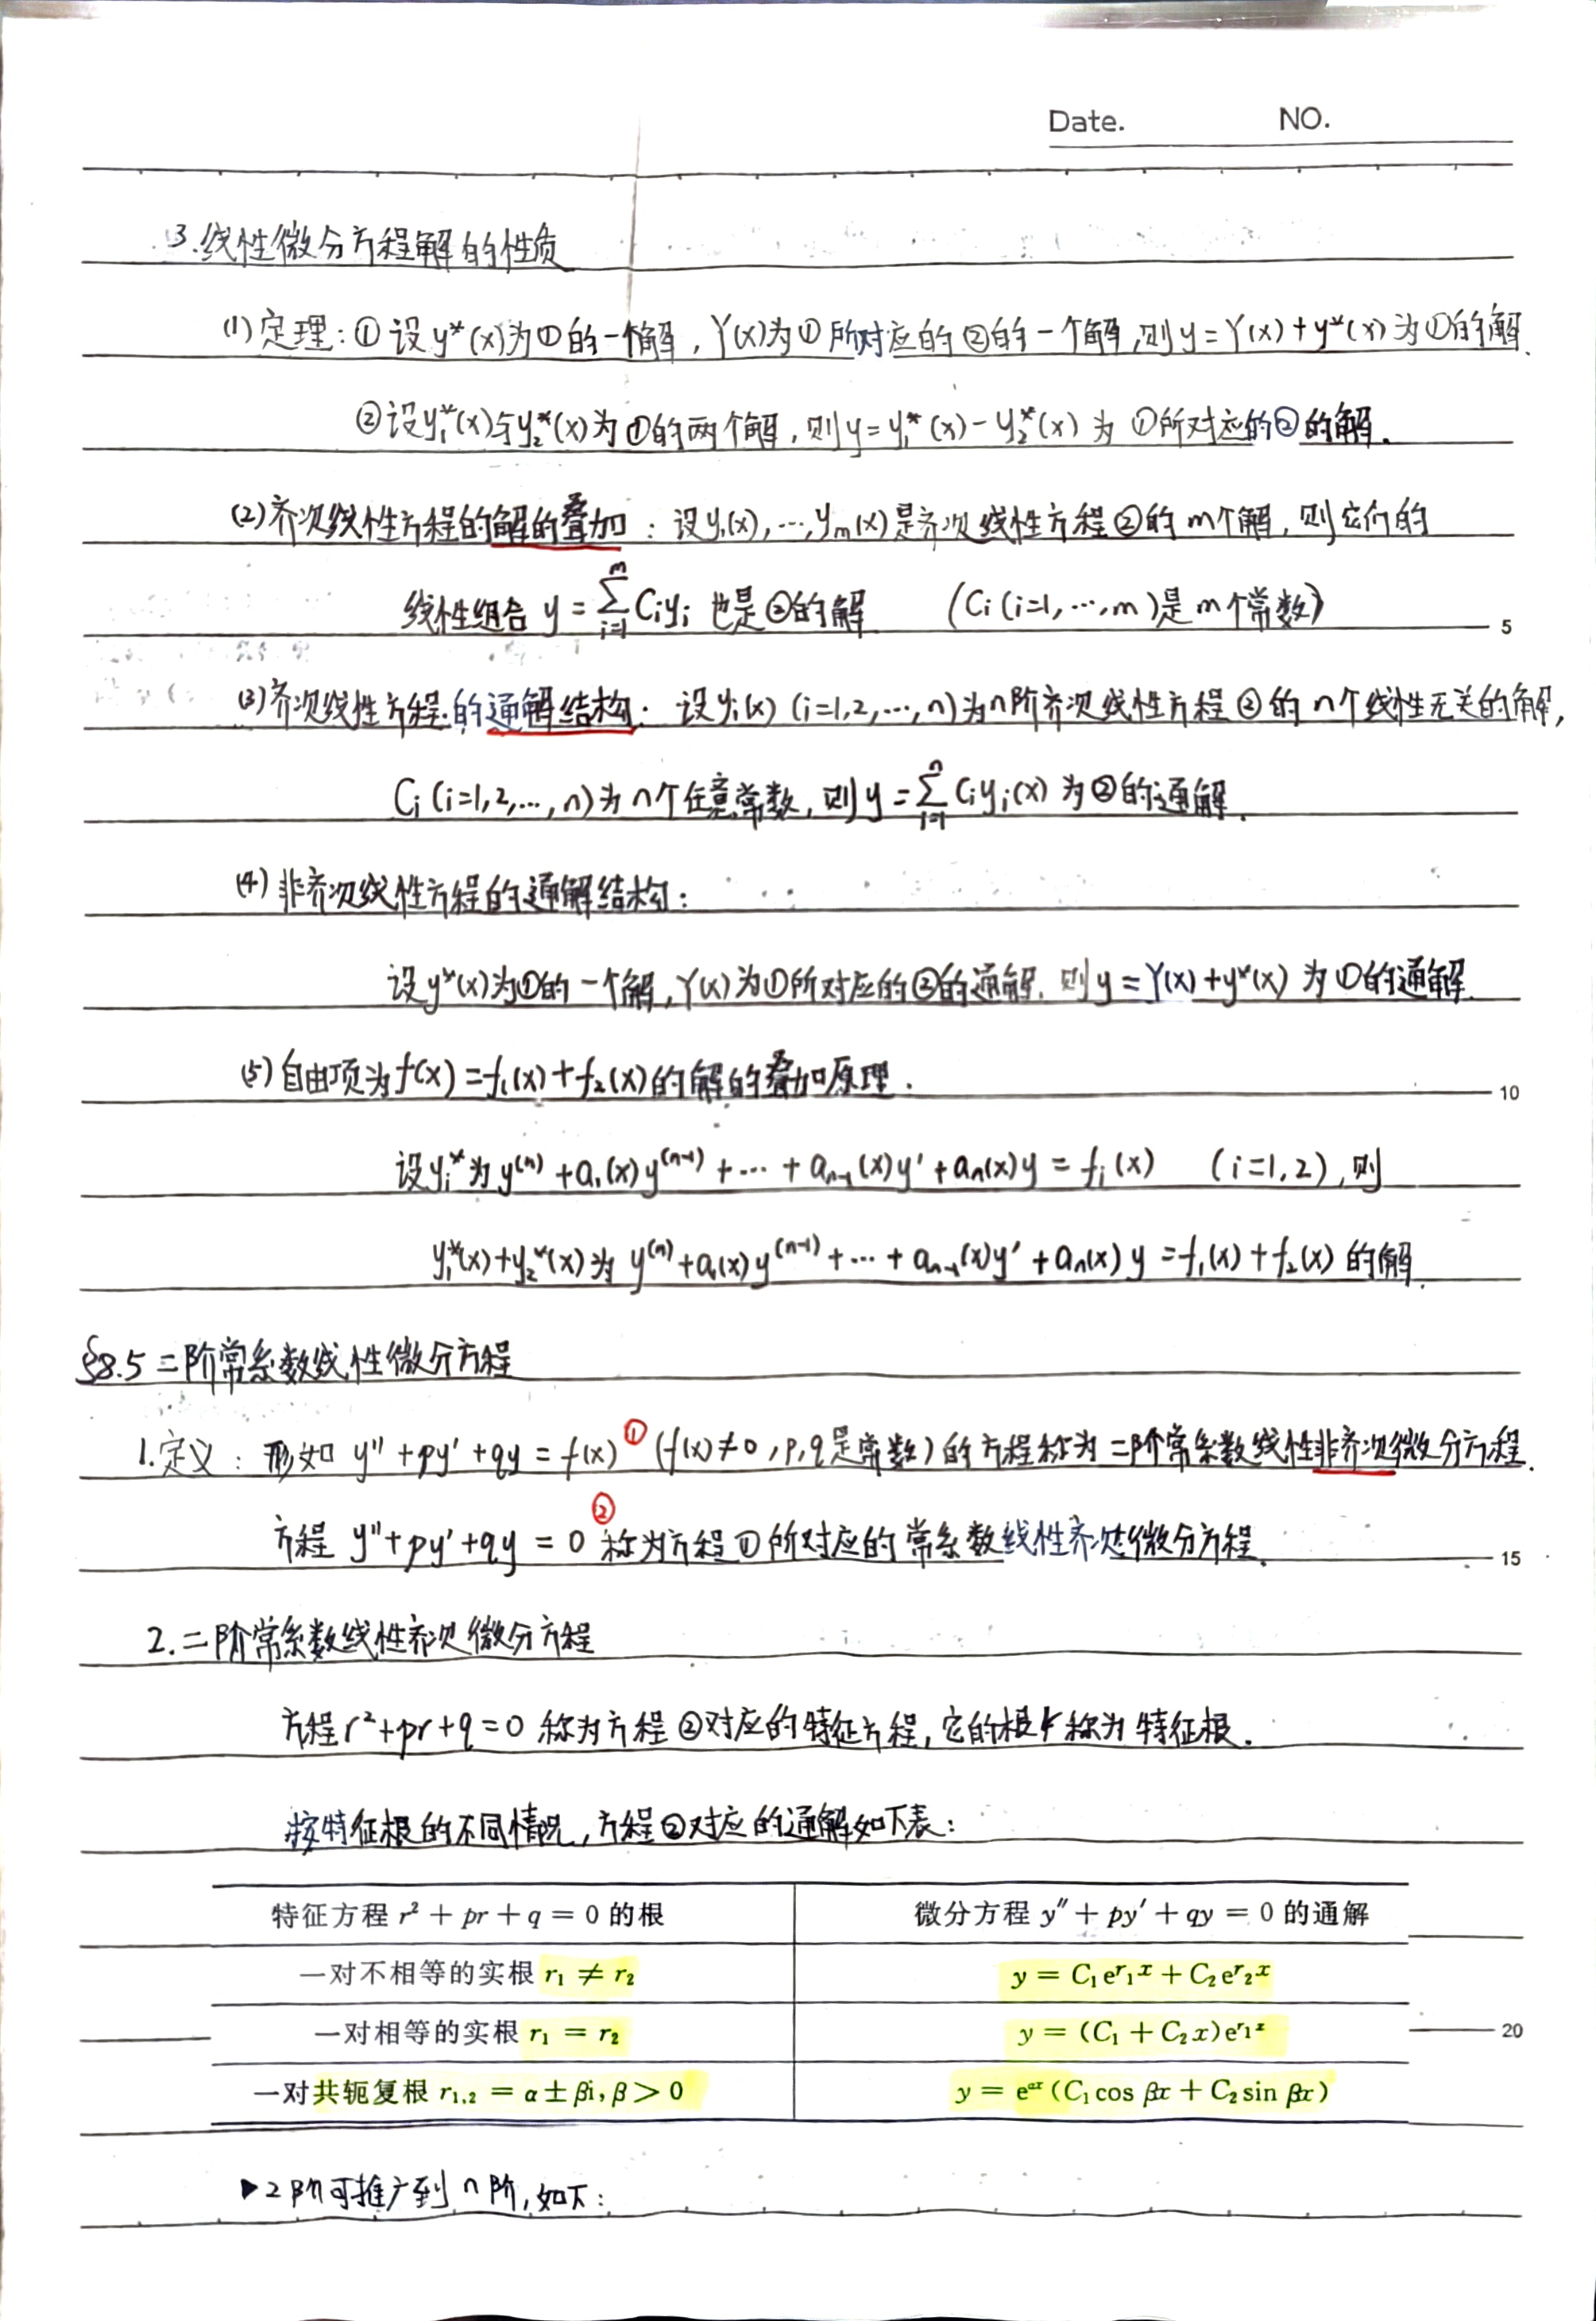 Date. NO.
3.线性微分方程解的性质
(1)定理:①设y*(x)为①的一个解,Y(x)为①所对应的②的一个解,则y=Y(x)+y*(x)为①的解.
②设y₁*(x)与y₂*(x)为①的两个解,则y=y₁*(x)-y₂*(x)为①所对应的②的解.
(2)齐次线性方程的解的叠加:设y₁(x),…,yₘ(x)是齐次线性方程②的m个解,则它们的
线性组合 y=∑ᵢ₌₁ᵐCᵢyᵢ 也是②的解 (Cᵢ(i=1,…,m)是m个常数)
5
(3)齐次线性方程的通解结构:设yᵢ(x)(i=1,2,…,n)为n阶齐次线性方程②的n个线性无关的解,
Cᵢ(i=1,2,…,n)为n个任意常数,则y=∑ᵢ₌₁ⁿCᵢyᵢ(x)为②的通解.
(4)非齐次线性方程的通解结构:
设y*(x)为①的一个解,Y(x)为①所对应的②的通解.则y=Y(x)+y*(x)为①的通解.
(5)自由项为f(x)=f₁(x)+f₂(x)的解的叠加原理.
10
设yᵢ*为y⁽ⁿ⁾+a₁(x)y⁽ⁿ⁻¹⁾+…+aₙ₋₁(x)y′+aₙ(x)y=fᵢ(x) (i=1,2),则
y₁*(x)+y₂*(x)为y⁽ⁿ⁾+a₁(x)y⁽ⁿ⁻¹⁾+…+aₙ₋₁(x)y′+aₙ(x)y=f₁(x)+f₂(x)的解.
§8.5二阶常系数线性微分方程
1.定义:形如 y″+py′+qy=f(x)①(f(x)≠0,p,q是常数)的方程称为二阶常系数线性非齐次微分方程.
方程 y″+py′+qy=0②称为方程①所对应的常系数线性齐次微分方程.
15
2.二阶常系数线性齐次微分方程
方程r²+pr+q=0称为方程②对应的特征方程,它的根r称为特征根.
按特征根的不同情况,方程②对应的通解如下表:
特征方程 r²+pr+q=0 的根 微分方程 y″+py′+qy=0 的通解
一对不相等的实根 r₁≠r₂ y=C₁e^{r₁x}+C₂e^{r₂x}
一对相等的实根 r₁=r₂ y=(C₁+C₂x)e^{r₁x}
20
一对共轭复根 r₁,₂=α±βi,β>0 y=e^{αx}(C₁cos βx+C₂sin βx)
▶2阶可推广到n阶,如下: